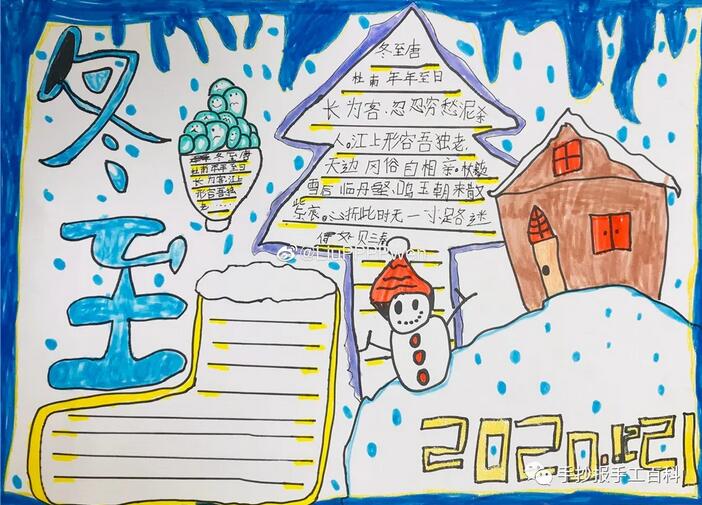 冬至
冬至唐
杜甫年年至日
长为客江上
形容吾独
老……
冬至唐
杜甫年年至日
长为客.忽忽穷愁泥杀
人。江上形容吾独老,
天边风俗自相亲。杖藜
雪后临丹壑,鸣玉朝来散
紫宸。心折此时无一寸足各迷
2020.12.21
手抄报手工百科